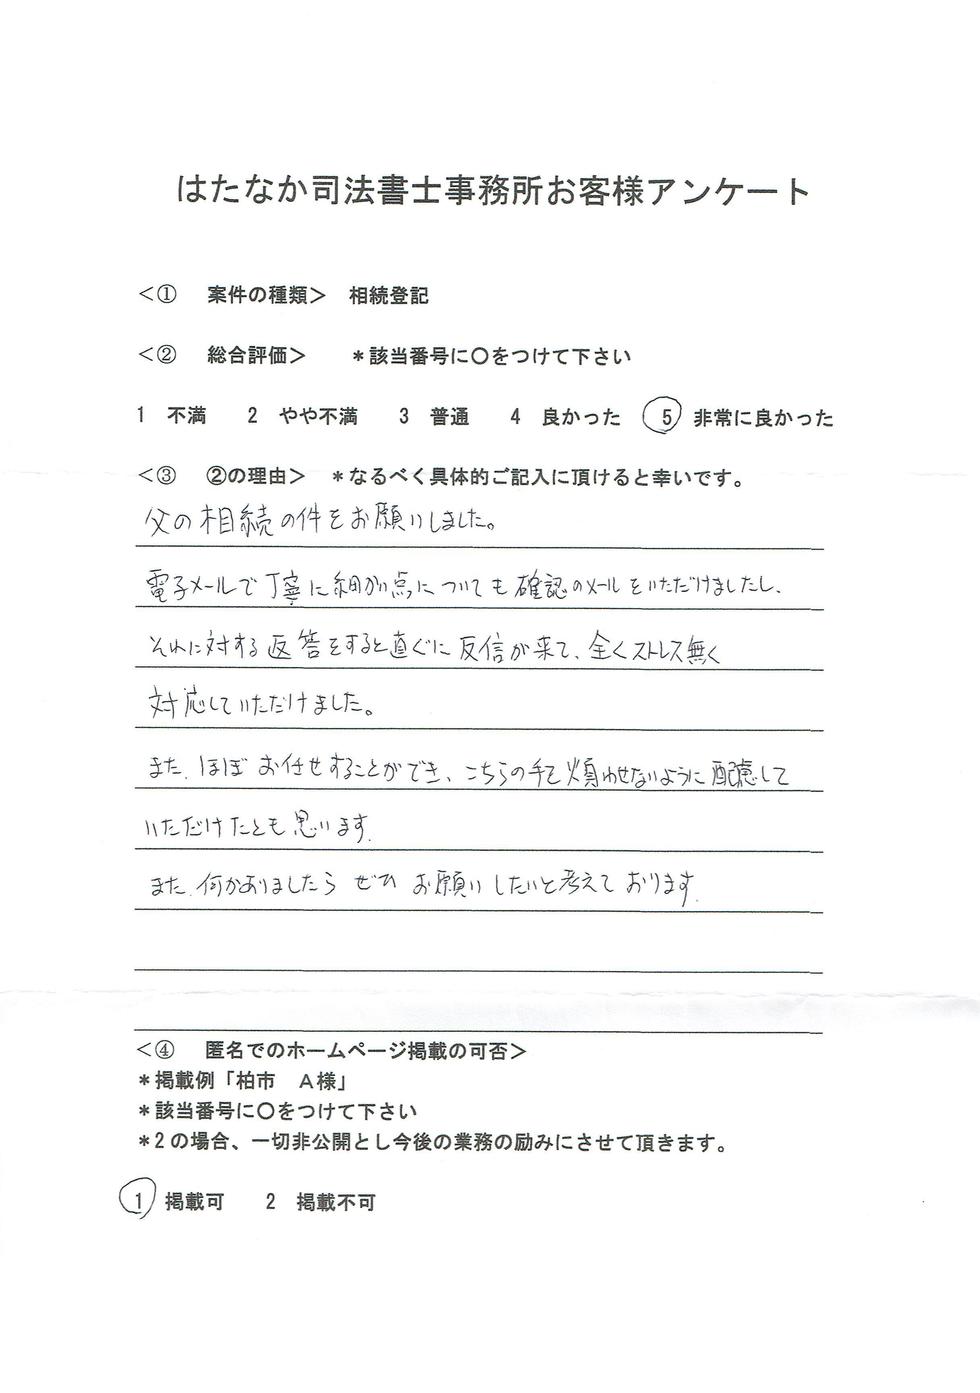 はたなか司法書士事務所お客様アンケート
＜①　案件の種類＞　相続登記
＜②　総合評価＞　＊該当番号に〇をつけて下さい
1　不満　2　やや不満　3　普通　4　良かった　5　非常に良かった
＜③　②の理由＞　＊なるべく具体的ご記入に頂けると幸いです。
父の相続の件をお願いしました。
電子メールで丁寧に細かい点についても確認のメールをいただけましたし、
それに対する返答をすると直ぐに反信が来て、全くストレス無く
対応していただけました。
また、ほぼお任せすることができ、こちらの手を煩わせないように配慮して
いただけたとも思います。
また、何かありましたらぜひお願いしたいと考えております。
＜④　匿名でのホームページ掲載の可否＞
＊掲載例「柏市　A様」
＊該当番号に〇をつけて下さい
＊2の場合、一切非公開とし今後の業務の励みにさせて頂きます。
1　掲載可　2　掲載不可